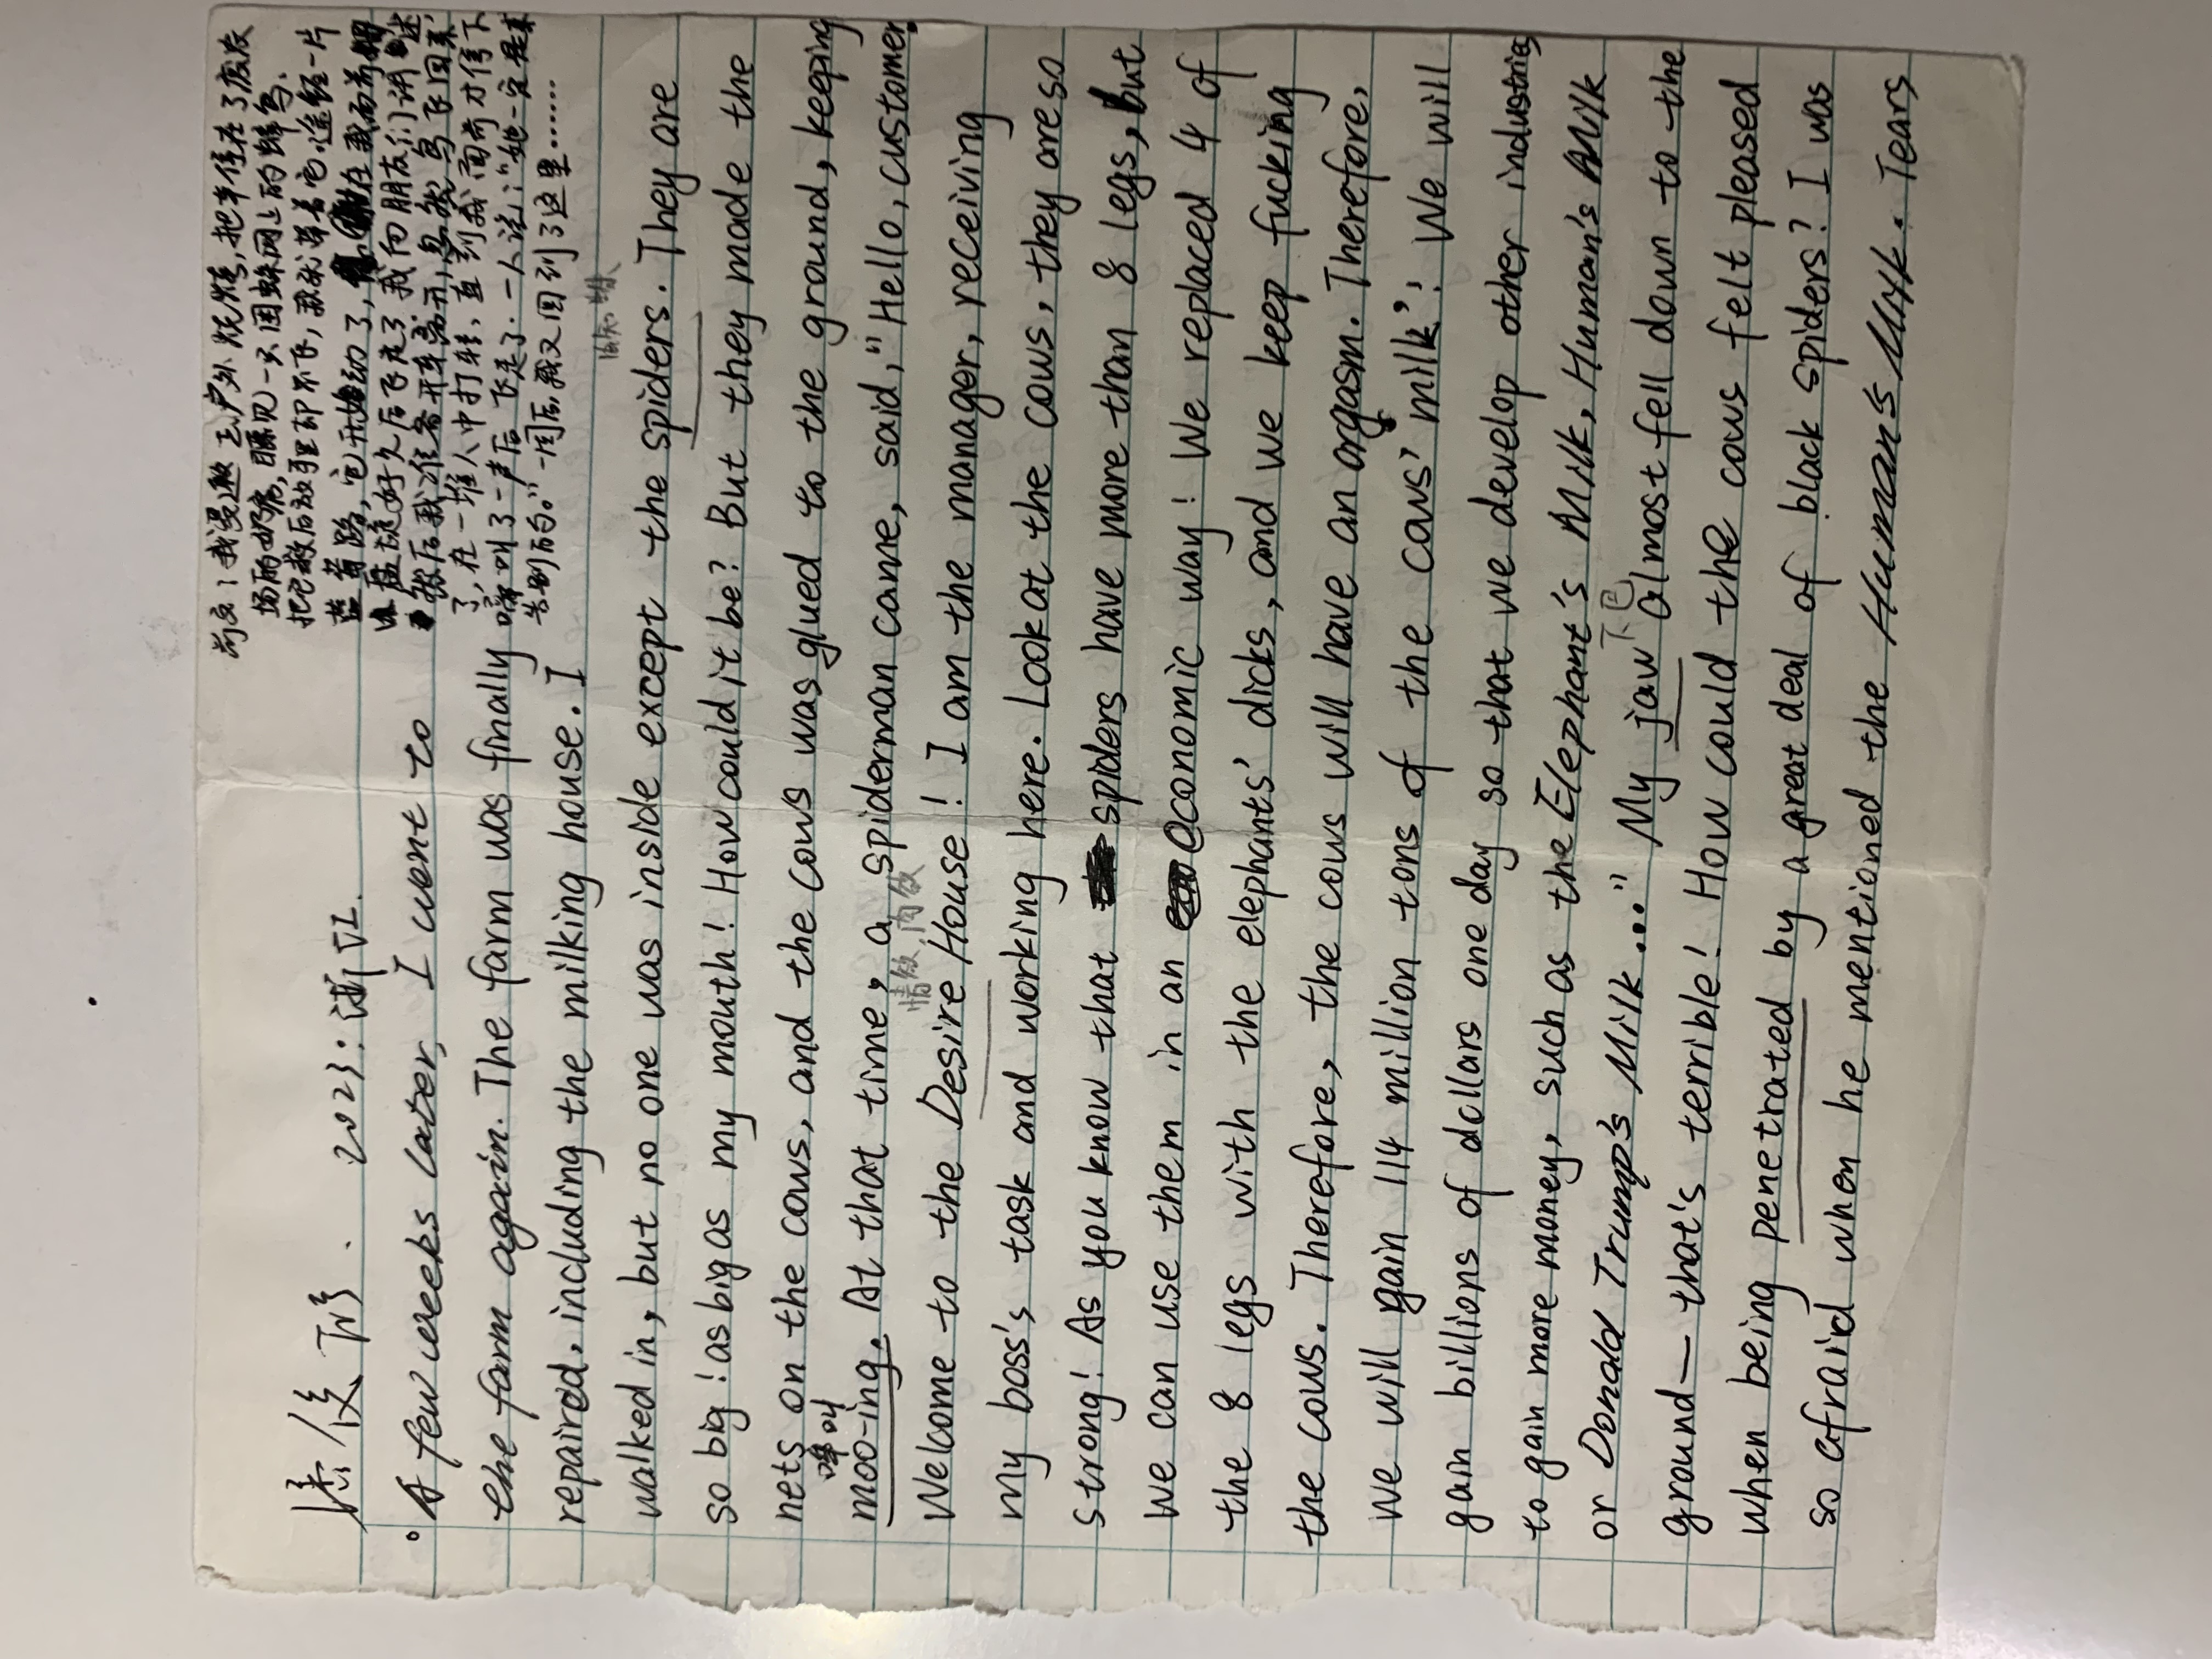 前文：我受邀去户外烧烤，把车停在了废农
场的奶房，瞧见一只困蛛网上的蜂鸟。
把它救后放手里却不飞，我就带着它。途经一片
蓝莓路，它开始动了，在我面前
盘旋好久后飞走了。我向朋友们讲述
然后我准备开车离开，忽然鸟飞回来
了，在一堆人中打转，直到我面前才停下
啼叫了一声后飞走了。一人说："她一定是来
告别的。"一周后，我又回到了这里……
2023：浙江.
A few weeks later, I went to
the farm again. The farm was finally
repaired, including the milking house. I
蜘蛛
walked in, but no one was inside except the spiders. They are
so big! as big as my mouth! How could it be? But they made the
nets on the cows, and the cows was glued to the ground, keeping
哞叫
moo-ing. At that time, a spiderman came, said, "Hello, customer.
情欲，肉欲
Welcome to the Desire House! I am the manager, receiving
my boss's task and working here. Look at the cows, they are so
strong! As you know that spiders have more than 8 legs, but
we can use them in an economic way! We replaced 4 of
the 8 legs with the elephants' dicks, and we keep fucking
the cows. Therefore, the cows will have an orgasm. Therefore,
we will gain 114 million tons of the cows' 'milk'! We will
gain billions of dollars one day so that we develop other industries
to gain more money, such as the Elephant's Milk, Human's Milk
下巴
or Donald Trump's Milk..." My jaw almost fell down to the
ground— that's terrible! How could the cows felt pleased
when being penetrated by a great deal of black spiders? I was
so afraid when he mentioned the Human's Milk. Tears